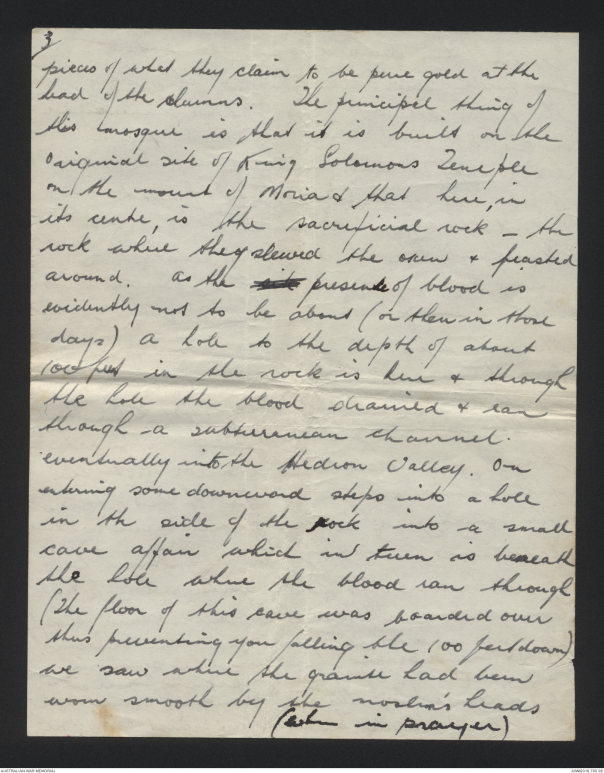 3
pieces of what they claim to be pure gold at the
head of the columns. The principel thing of
this mosque is that it is built on the
origuinal site of King Solomons Temple
on the mount of Moria & that here, in
its centre, is the sacreficial rock - the
rock where they slewed the oxen & feasted
around. as the site presence of blood is
evidently not to be about (or then in those
days) a hole to the depth of about
100 feet in the rock is here & through
the hole the blood drained & ran
through a subterrenean channel.
eventually into the Hedron Valley. On
entering some downward steps into a hole
in the side of the rock into a small
cave affair which in turn is beneath
the hole where the blood ran through
(The floor of this cave was boarded over
thus preventing you falling the 100 feet down)
we saw where the granite had been
worn smooth by the moslem's heads
(when in prayer)
AUSTRALIAN WAR MEMORIAL